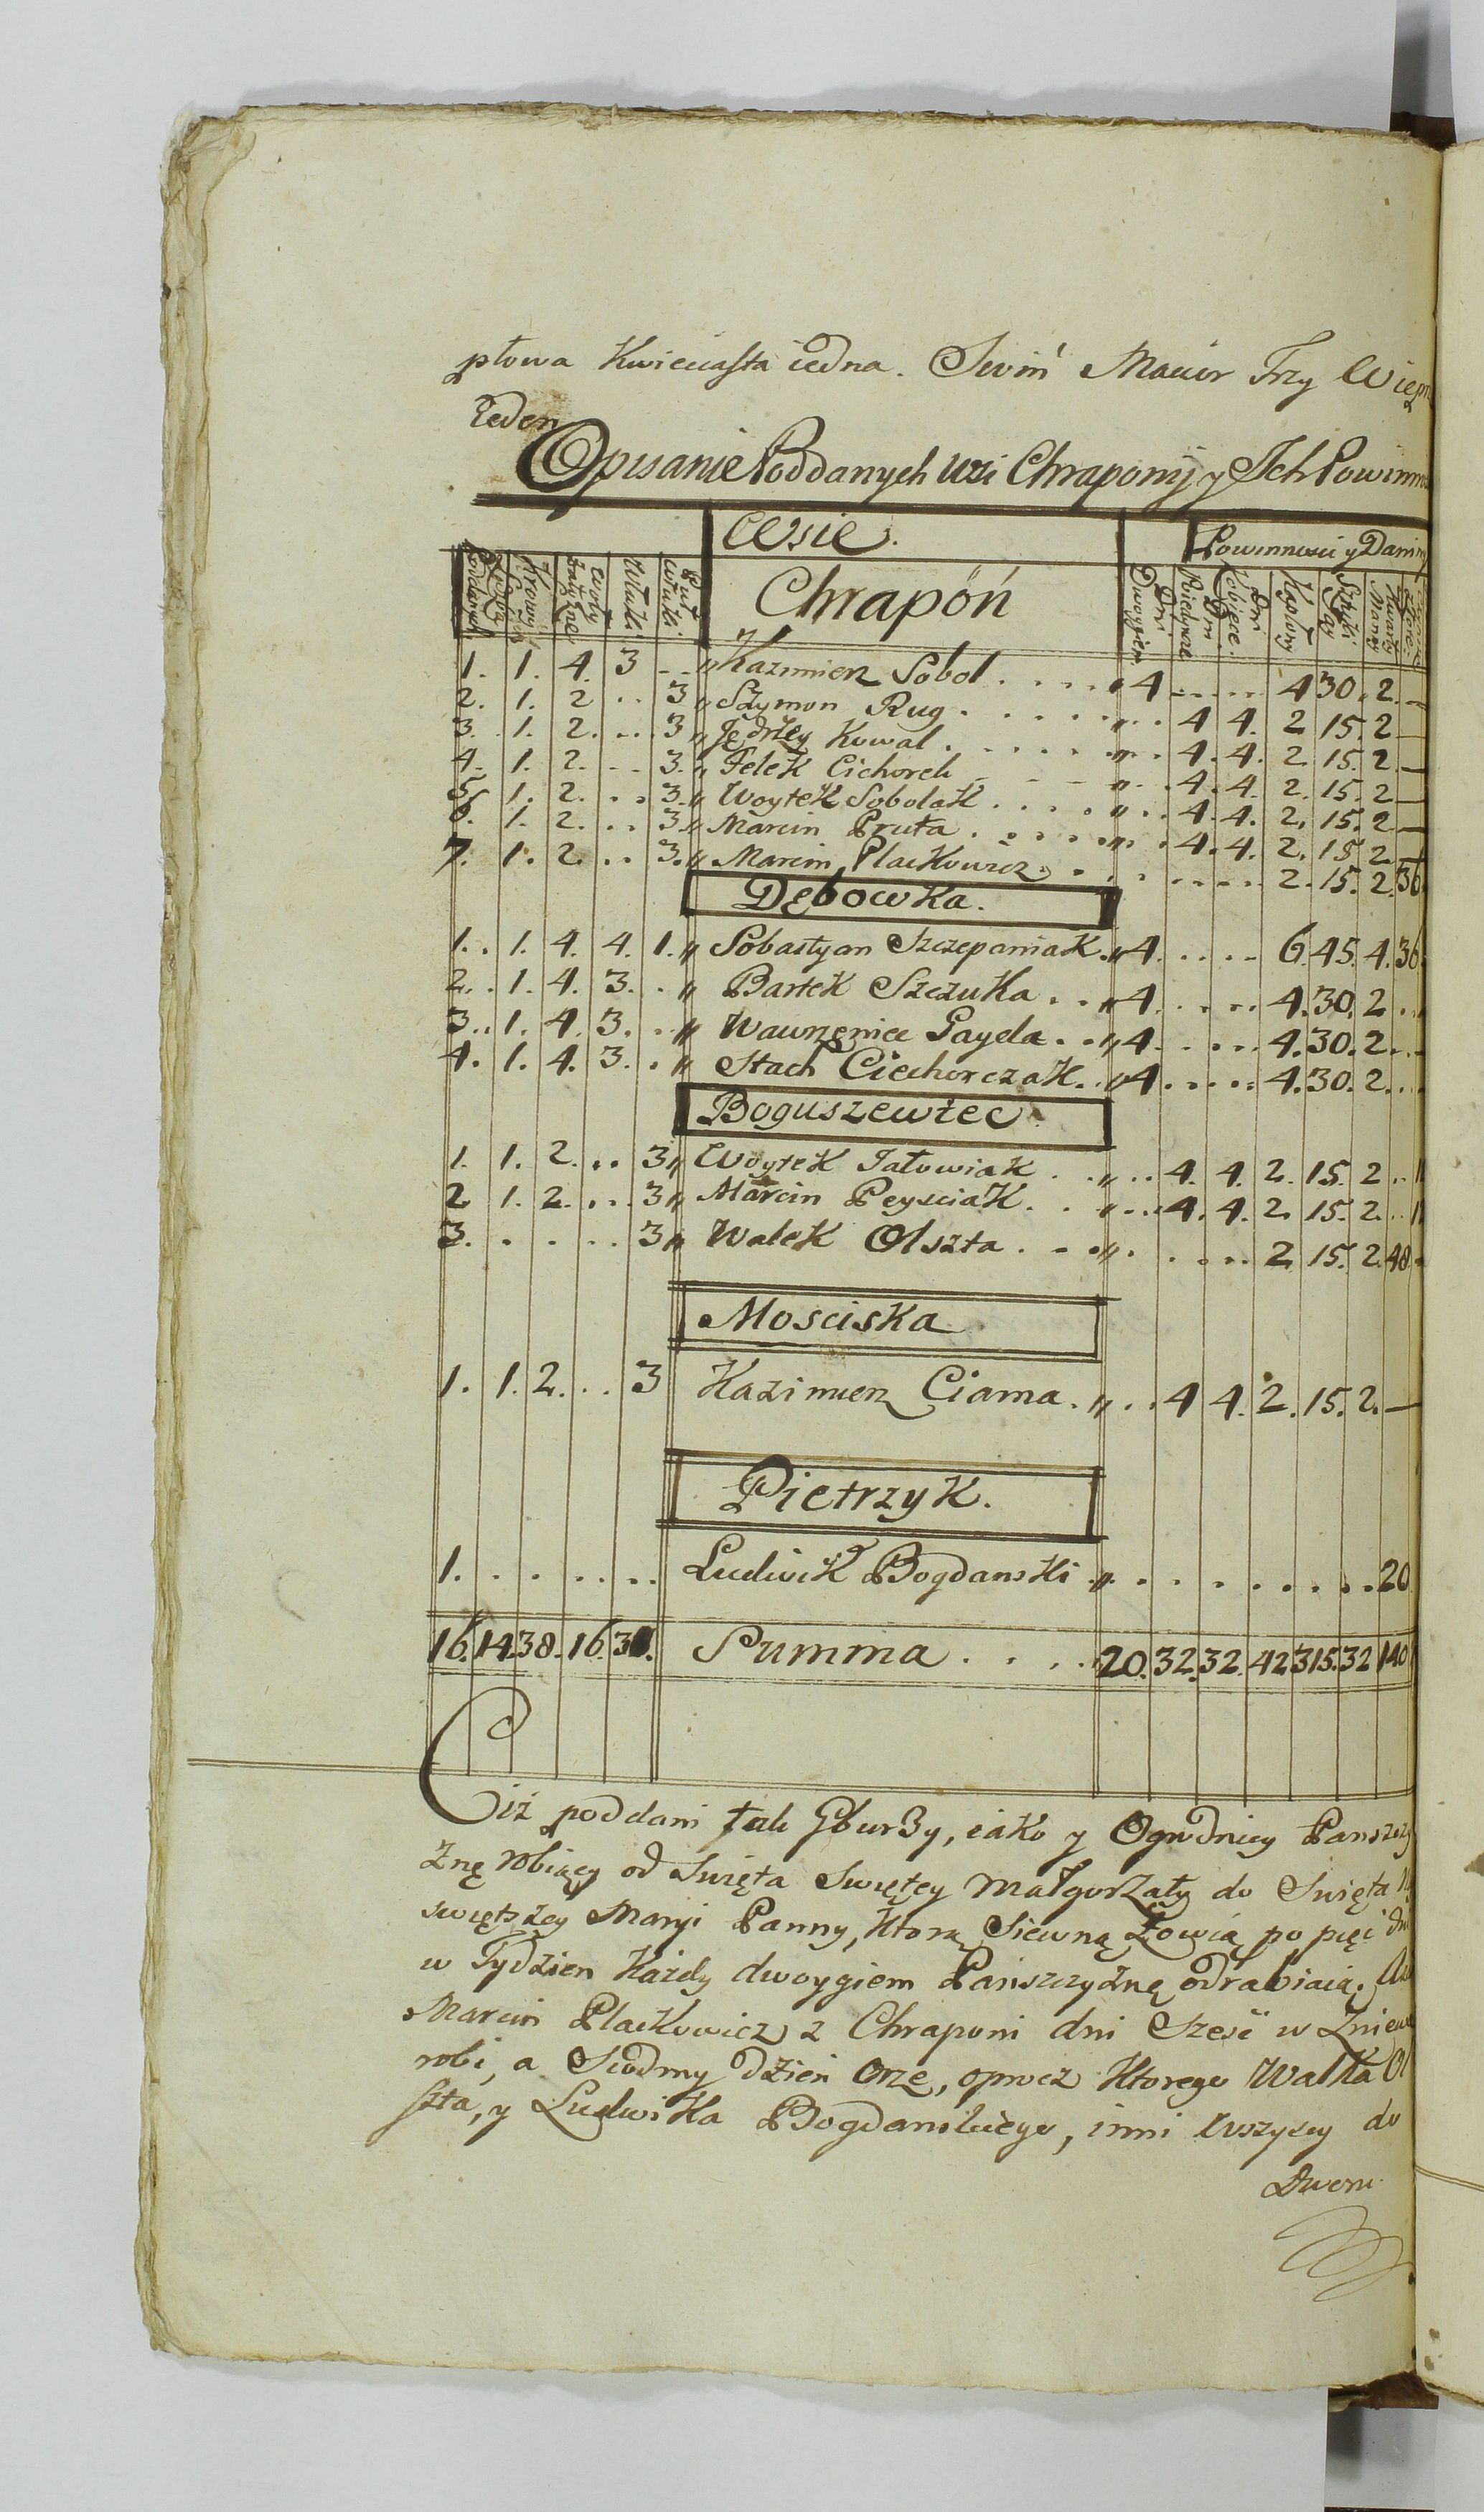 płowa Kwieciasta iedna. Swiń Macior Trzy Wiep
ieden
Opisanie Poddanych Wsi Chraponij y Ich Powinno
Wsie. Powinnosci y Daniny
Chrapóń
Liczba Poddanych Krowy Woły Włuki Puł Włuki Dwoygiem Dni Piechoze Dni Kobiece Dni Kapłony Sztuki Jay
1. 1. 4. 3 -- " Kazimierz Sobol . . . . " 4 ..... 4 30. 2. —
2. 1. 2 .. 3 " Szymon Rug . . . . . " .. 4 4. 2 15. 2 —
3. 1. 2. ... 3 " Jędrzey Kowal . . . . . " . 4. 4. 2. 15. 2. —
4. 1. 2. -- 3. " Felek Cichorek - - - " . 4. 4. 2. 15. 2 —
5. 1. 2. .. 3. " Woytek Sobolak . . . . " .. 4. 4. 2. 15. 2 —
6. 1. 2. .. 3. " Marcin Pruta . . . . . " . 4. 4. 2. 15. 2 —
7. 1. 2. .. 3. " Marcin Plackowicz . . . . . . . 2. 15. 2. 36.
Dębowka.
1. . 1. 4. 4. 1. " Sobastyan Szczepaniak. " 4. .... 6. 45. 4. 36.
2. . 1. 4. 3. . " Bartek Szczuka . . " 4. .... 4. 30. 2 . .
3. . 1. 4. 3. .. " Wawrzęniec Gayda . . " 4. .... 4. 30. 2. ..
4. 1. 4. 3. . " Stach Ciechorczak. . " 4. .... 4. 30. 2. ..
Boguszewiec.
1. 1. 2. .. 3 " Woytek Jałowiak . . " .. 4. 4. 2. 15. 2 .. "
2 1. 2. ... 3 " Marcin Peysciak. . " ... 4. 4. 2. 15. 2. .. "
3. . . . .. 3 " Walek Olszta . . . " . . ... 2. 15. 2. 48.
Mosciska.
1. 1. 2. .. 3 Kazimierz Ciama . " . . 4 4. 2. 15. 2. —
Pietrzyk.
1. . . . . . . Ludwik Bogdanski . " . . . . . . . . . 20
16. 14. 38. 16. Summa . . . . 20. 32. 32. 42 315. 32 140
Ciż poddani tak Gburzy, iako y Ogrodnicy Panszczy
znę robiący od Swięta Swiętey Małgorzaty do Swięta
swiętszey Maryi Panny, ktorą Siewną Zowią po pięć dni
w Tydzien Kazdy dwoygiem Pańszczyznę odrabiaią.
Marcin Plackowicz z Chraponi dni Szesć w Zniewa
robi, a Siodmy dzien orze, oprocz Ktorego Walka Ol
szta, y Ludwika Bogdanskiego, inni wszyscy do
Dworu